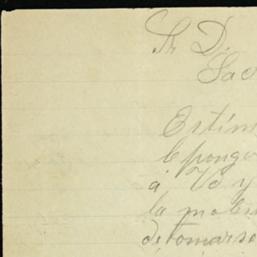 Sr D.
Sac
Estim
le pongo
á Vd y
la moles
de tomarse